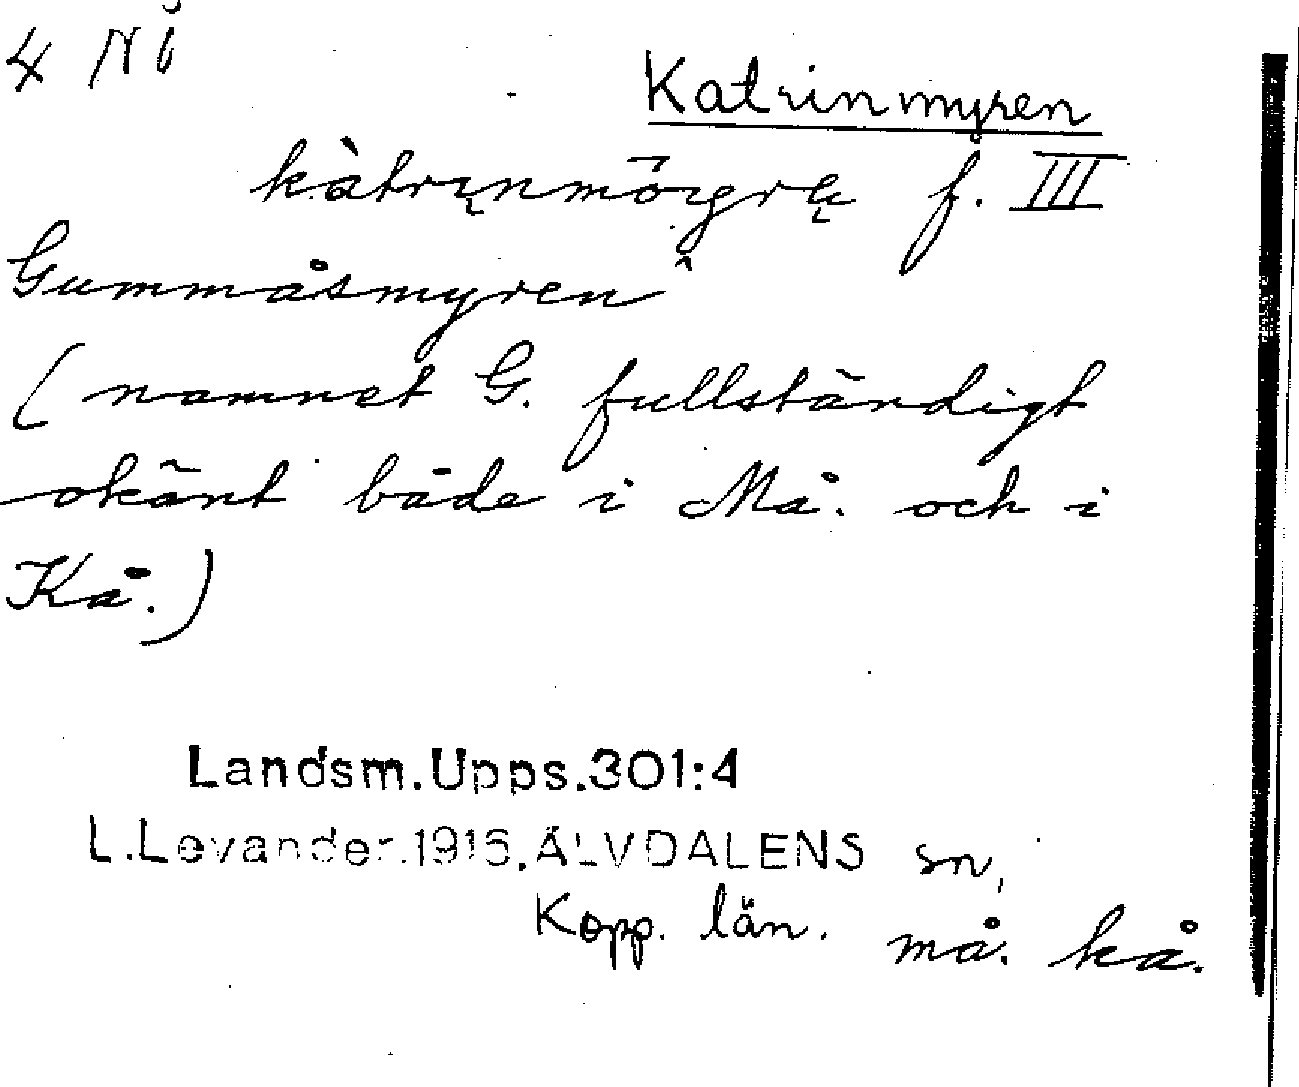 4 Nĭ
Katrinmyren
kàtrįnmȫɪgrę f. III
Gummåsmyren
(namnet G. fullständigt
okänt både i Må. och i
Kå.)
Landsm.Upps.301:4
L.Levander.1916.ÄLVDALENS sn,
Kopp. län. må. kå.